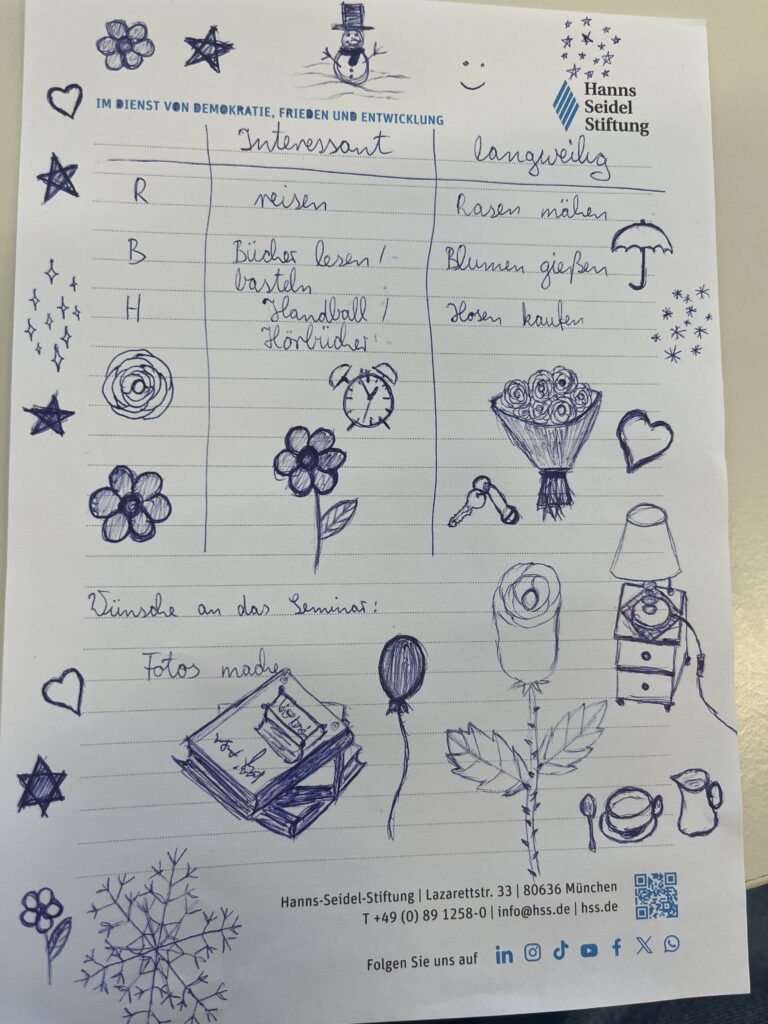 IM DIENST VON DEMOKRATIE, FRIEDEN UND ENTWICKLUNG
Hanns
Seidel
Stiftung
Interessant langweilig
R reisen Rasen mähen
B Bücher lesen / Blumen gießen
basteln
H Handball / Hosen kaufen
Hörbücher
Wünsche an das Seminar:
Fotos machen
Hanns-Seidel-Stiftung | Lazarettstr. 33 | 80636 München
T +49 (0) 89 1258-0 | info@hss.de | hss.de
Folgen Sie uns auf